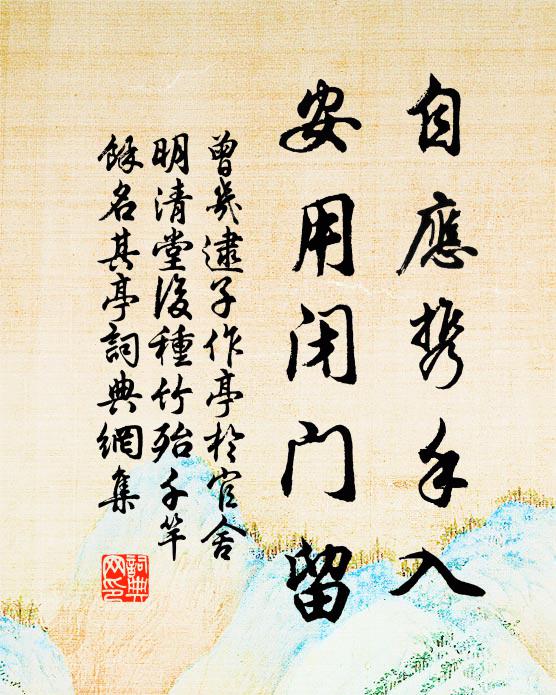 自應携手入
安用閉門留
曾幾逮子作亭於官舍
明清堂後種竹殆千竿
餘名其亭詞典網集
詞典網印